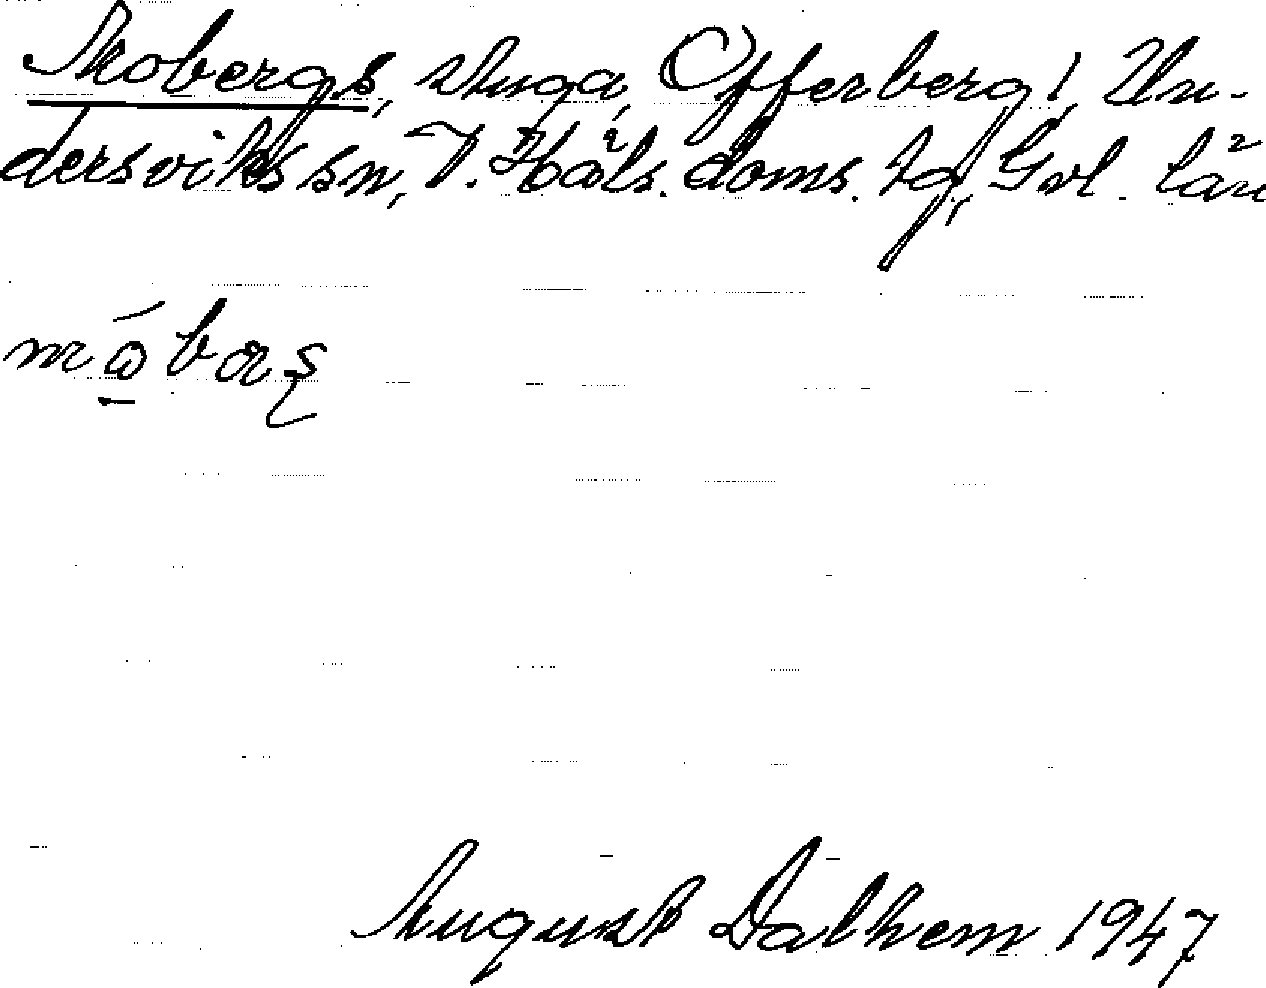 Mobergs, stuga, Offerberg 1, Un-
dersviks sn, V. Häls. doms. tg, Gvl. län
móbaʂ
August Dalhem 1947